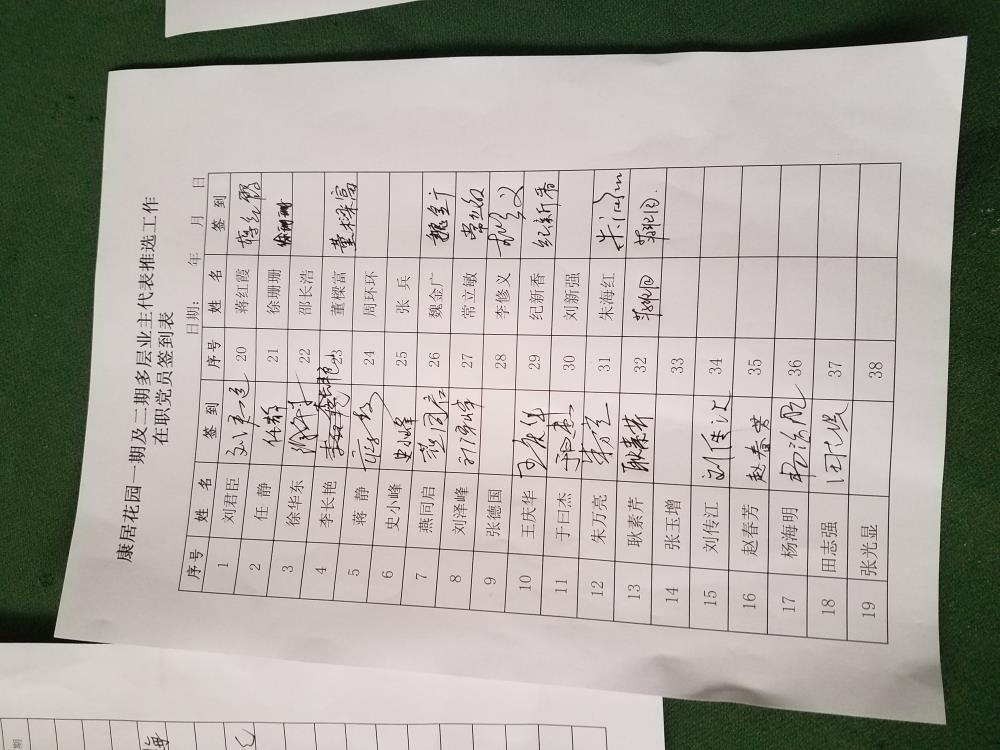 康居花园一期及二期多层业主代表推选工作
在职党员签到表
日期: 年 月 日
序号 姓 名 签 到 序号 姓 名 签 到
1 刘君臣 20 蒋红霞 蒋红霞
2 任 静 任静 21 徐珊珊 徐珊珊
3 徐华东 22 邵长浩
4 李长艳 李长艳 23 董樑富 董樑富
5 蒋 静 24 周环环
6 史小峰 史小峰 25 张 兵
7 燕同启 燕同启 26 魏金广 魏金广
8 刘泽峰 刘泽峰 27 常立敏 常立敏
9 张德国 28 李修义
10 王庆华 王庆华 29 纪新香 纪新香
11 于曰杰 30 刘新强
12 朱万亮 31 朱海红
13 耿素芹 耿素芹 32
14 张玉增 33
15 刘传江 刘传江 34
16 赵春芳 赵春芳 35
17 杨海明 36
18 田志强 37
19 张光显 38
期